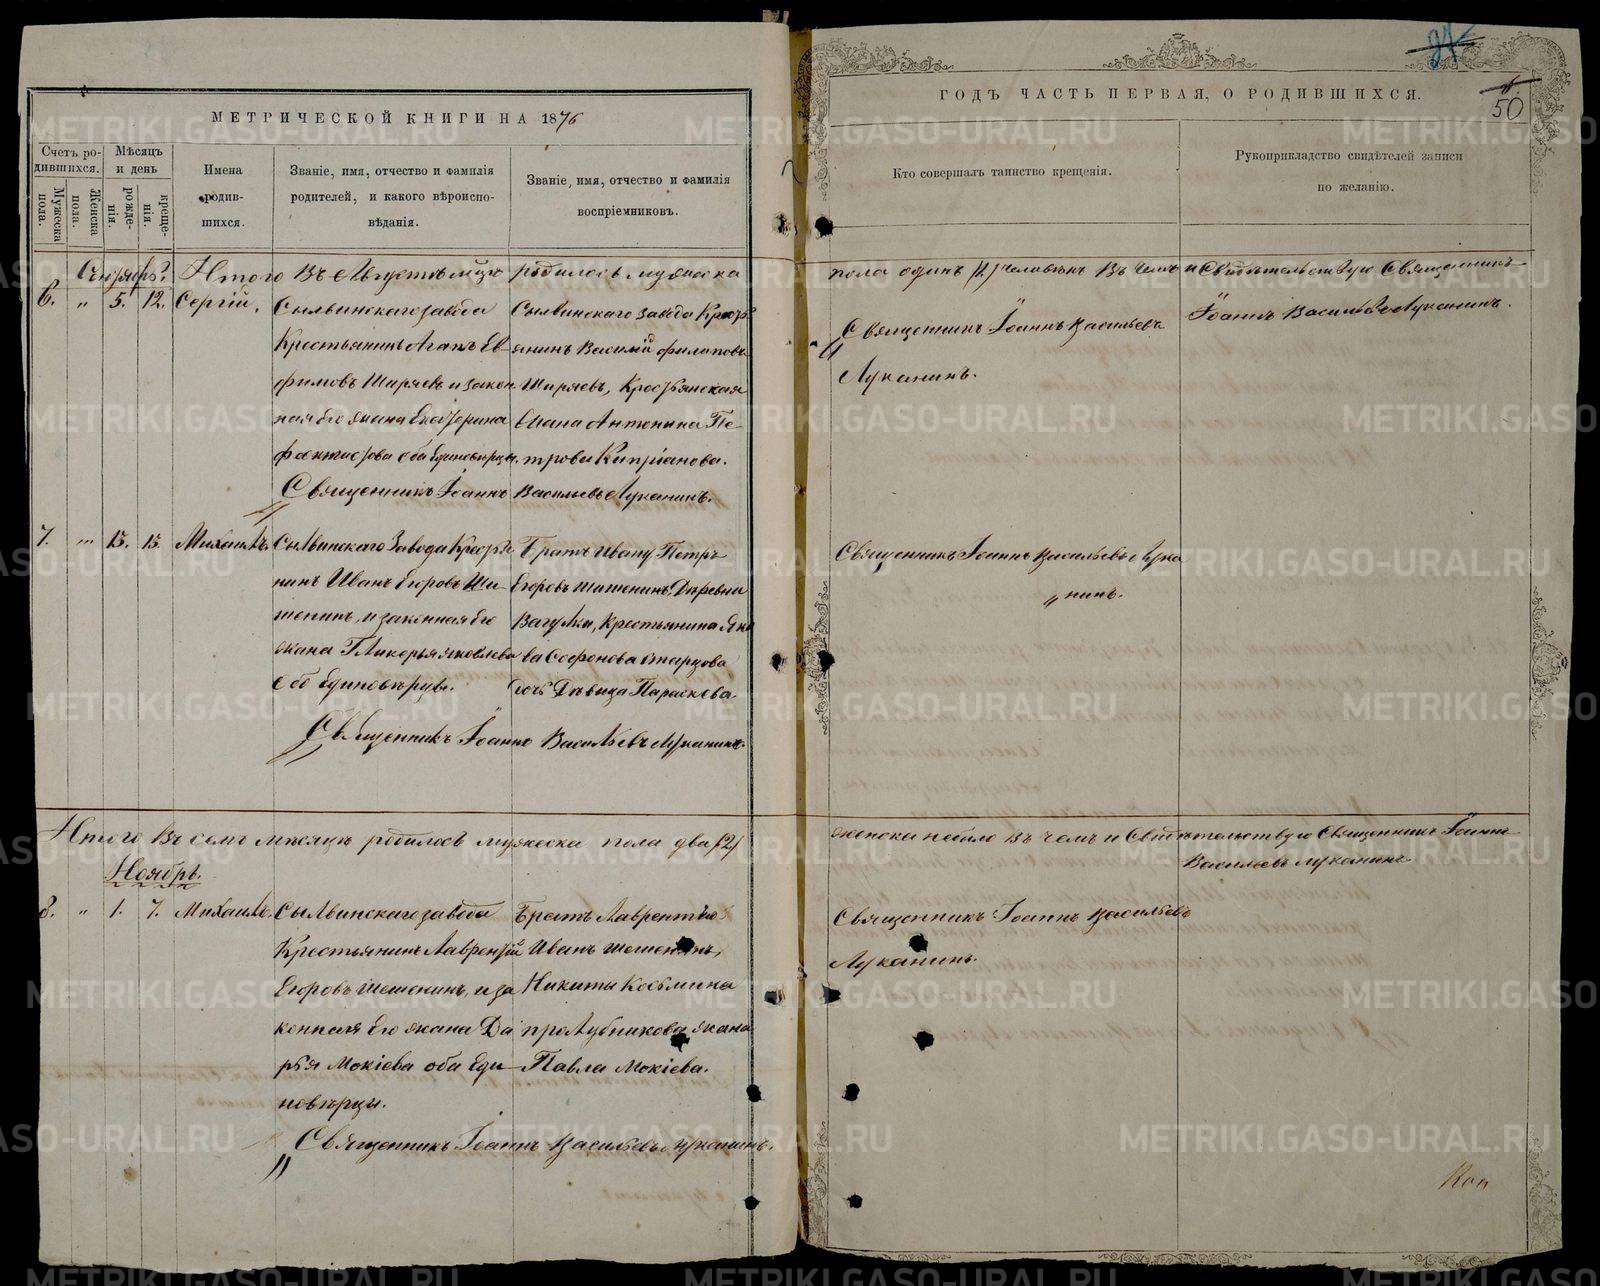 МЕТРИЧЕСКОЙ КНИГИ НА 1876
Счетъ родившихся.
Мужеска пола.
Женска пола.
Мѣсяцъ и день
рожденія.
крещенія.
Имена родившихся.
Званіе, имя, отчество и фамилія
родителей, и какого вѣроиспо-
вѣданія.
Званіе, имя, отчество и фамилія
воспріемниковъ.
Итого Въ Августѣ мцѣ родилось мужеска
6. " 5. 12. Сергій.
Сылвинскаго завода
Крестьянинъ Агапъ Ев
фимовъ Ширяевъ и закон
ная его жена Екатерина
Феоктистова оба Единовѣрцы.
Сылвинскаго завода Крестъ
янинъ Василій Филиповъ
Ширяевъ, Крестьянская
жена Антонина Пе-
трова Кипріанова.
Священникъ Іоаннъ Васильевъ Луканинъ.
7. " 15. 15. Михаилъ.
Сылвинскаго Завода Крестья
нинъ Иванъ Егоровъ Ши-
шенинъ, и законная его
жена Гликерья Яковлева
оба Единовѣрцы.
Братъ Ивану Петръ
Егоровъ Шишенинъ. Деревни
Вагулки, Крестьянина Яко
ва Софонова Старцова
дочь Дѣвица Параскева.
Священникъ Іоаннъ Васильевъ Луканинъ.
Итого Въ семъ мѣсяцѣ родилось мужеска пола два /2/
Ноябрь.
8. " 1. 7. Михаилъ.
Сылвинскаго завода
Крестьянинъ Лаврентій
Егоровъ Шешенинъ, и за
конная его жена Да
рья Мокіева оба Еди
новѣрцы.
Братъ Лаврентію
Иванъ Шешенинъ,
Никиты Косьмина
Пролубникова жена
Павла Мокіева.
Священникъ Іоаннъ Васильевъ Луканинъ.
50
ГОДЪ ЧАСТЬ ПЕРВАЯ, О РОДИВШИХСЯ.
Кто совершалъ таинство крещенія.
Рукоприкладство свидѣтелей записи
по желанію.
пола одинъ /1/ человѣкъ Въ чемъ и Свидѣтельствую Священникъ
Іоаннъ Васильевъ Луканинъ.
Священникъ Іоаннъ Васильевъ
Луканинъ.
Священникъ Іоаннъ Васильевъ Лука
нинъ.
женска небыло Въ чемъ и Свидѣтельствую Священникъ Іоаннъ
Васильевъ Луканинъ
Священникъ Іоаннъ Васильевъ
Луканинъ.
METRIKI.GASO-URAL.RU